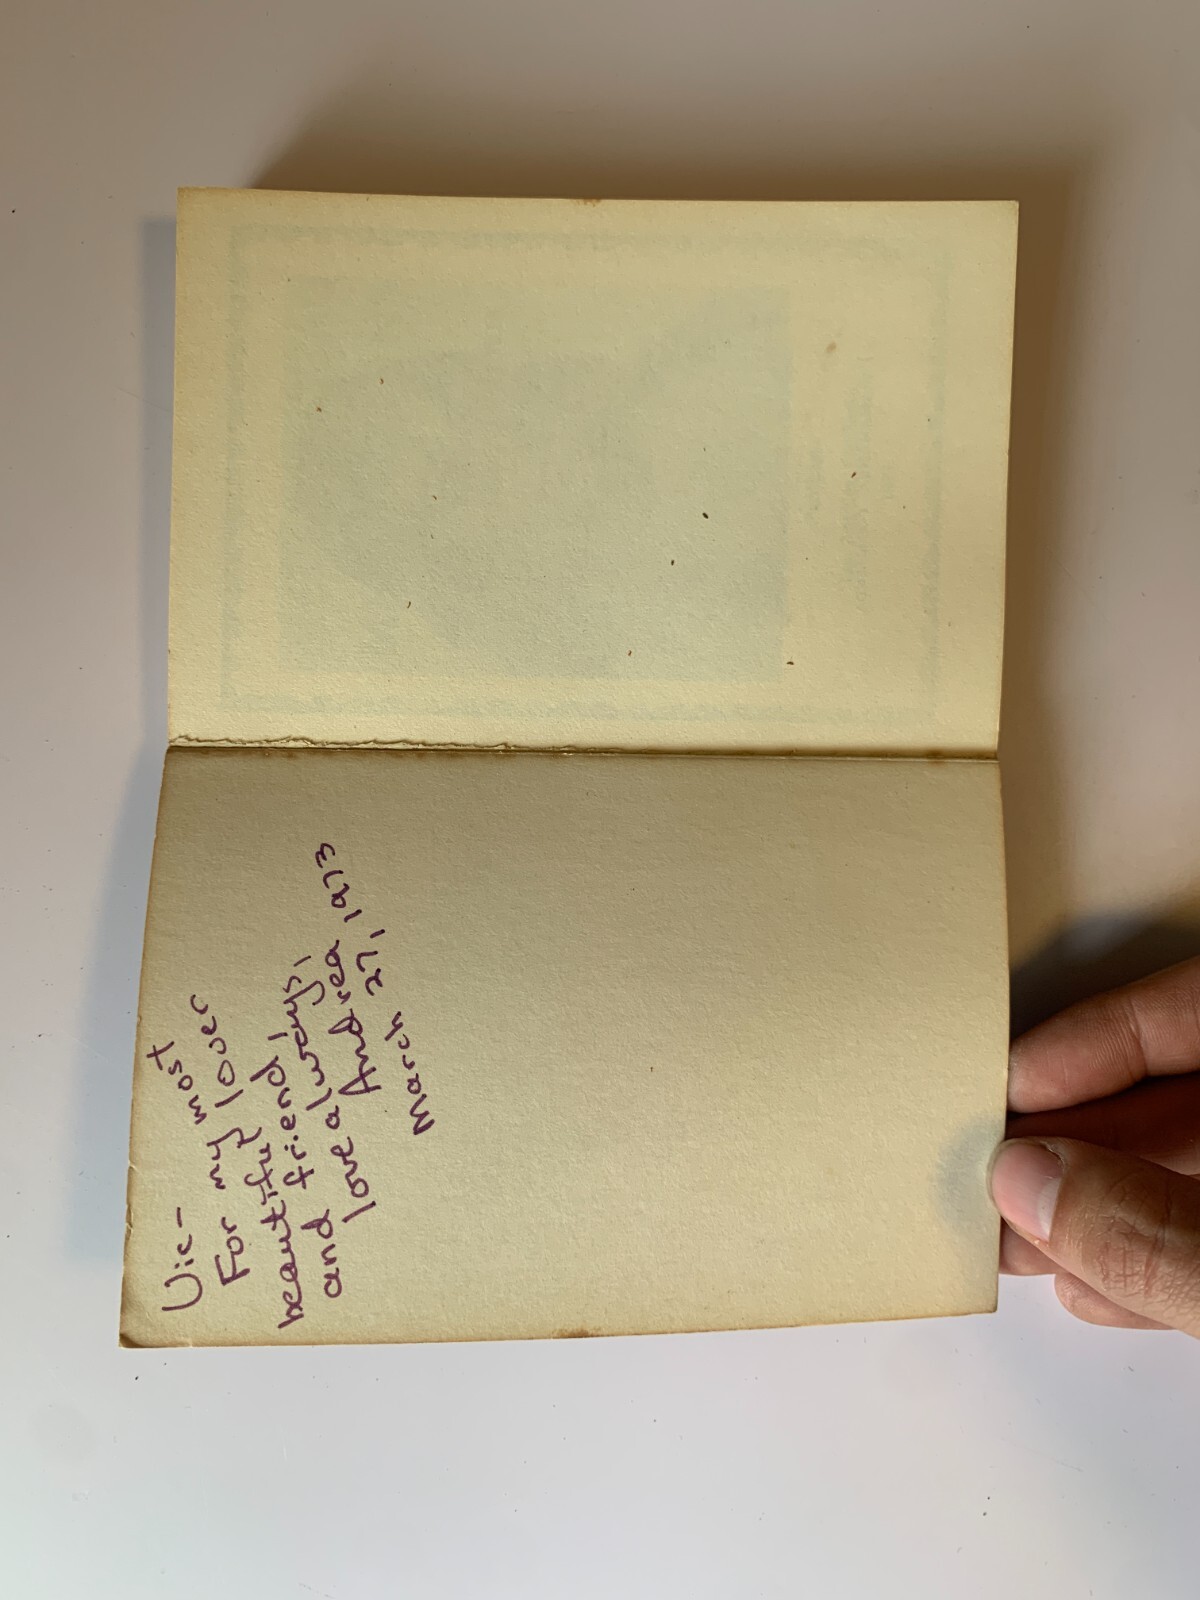 Vic-
For my most
beautiful lover
and friend,
love always,
Andrea
March 27, 1973